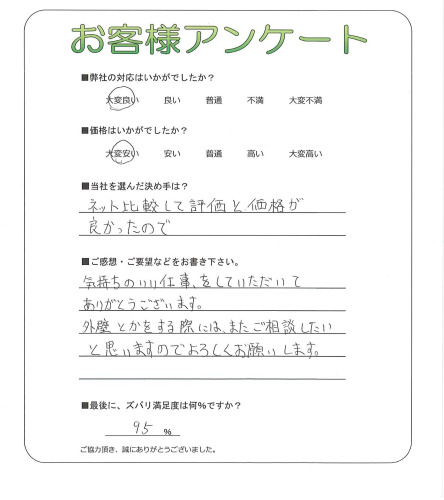 お客様アンケート
■弊社の対応はいかがでしたか?
大変良い 良い 普通 不満 大変不満
■価格はいかがでしたか?
大変安い 安い 普通 高い 大変高い
■当社を選んだ決め手は?
ネット比較して評価と、価格が
良かったので
■ご感想・ご要望などをお書き下さい。
気持ちのいい仕事、をしていただいて
ありがとうございます。
外壁とかをする際には、またご相談したい
と思いますのでよろしくお願いします。
■最後に、ズバリ満足度は何%ですか?
95 %
ご協力頂き、誠にありがとうございました。